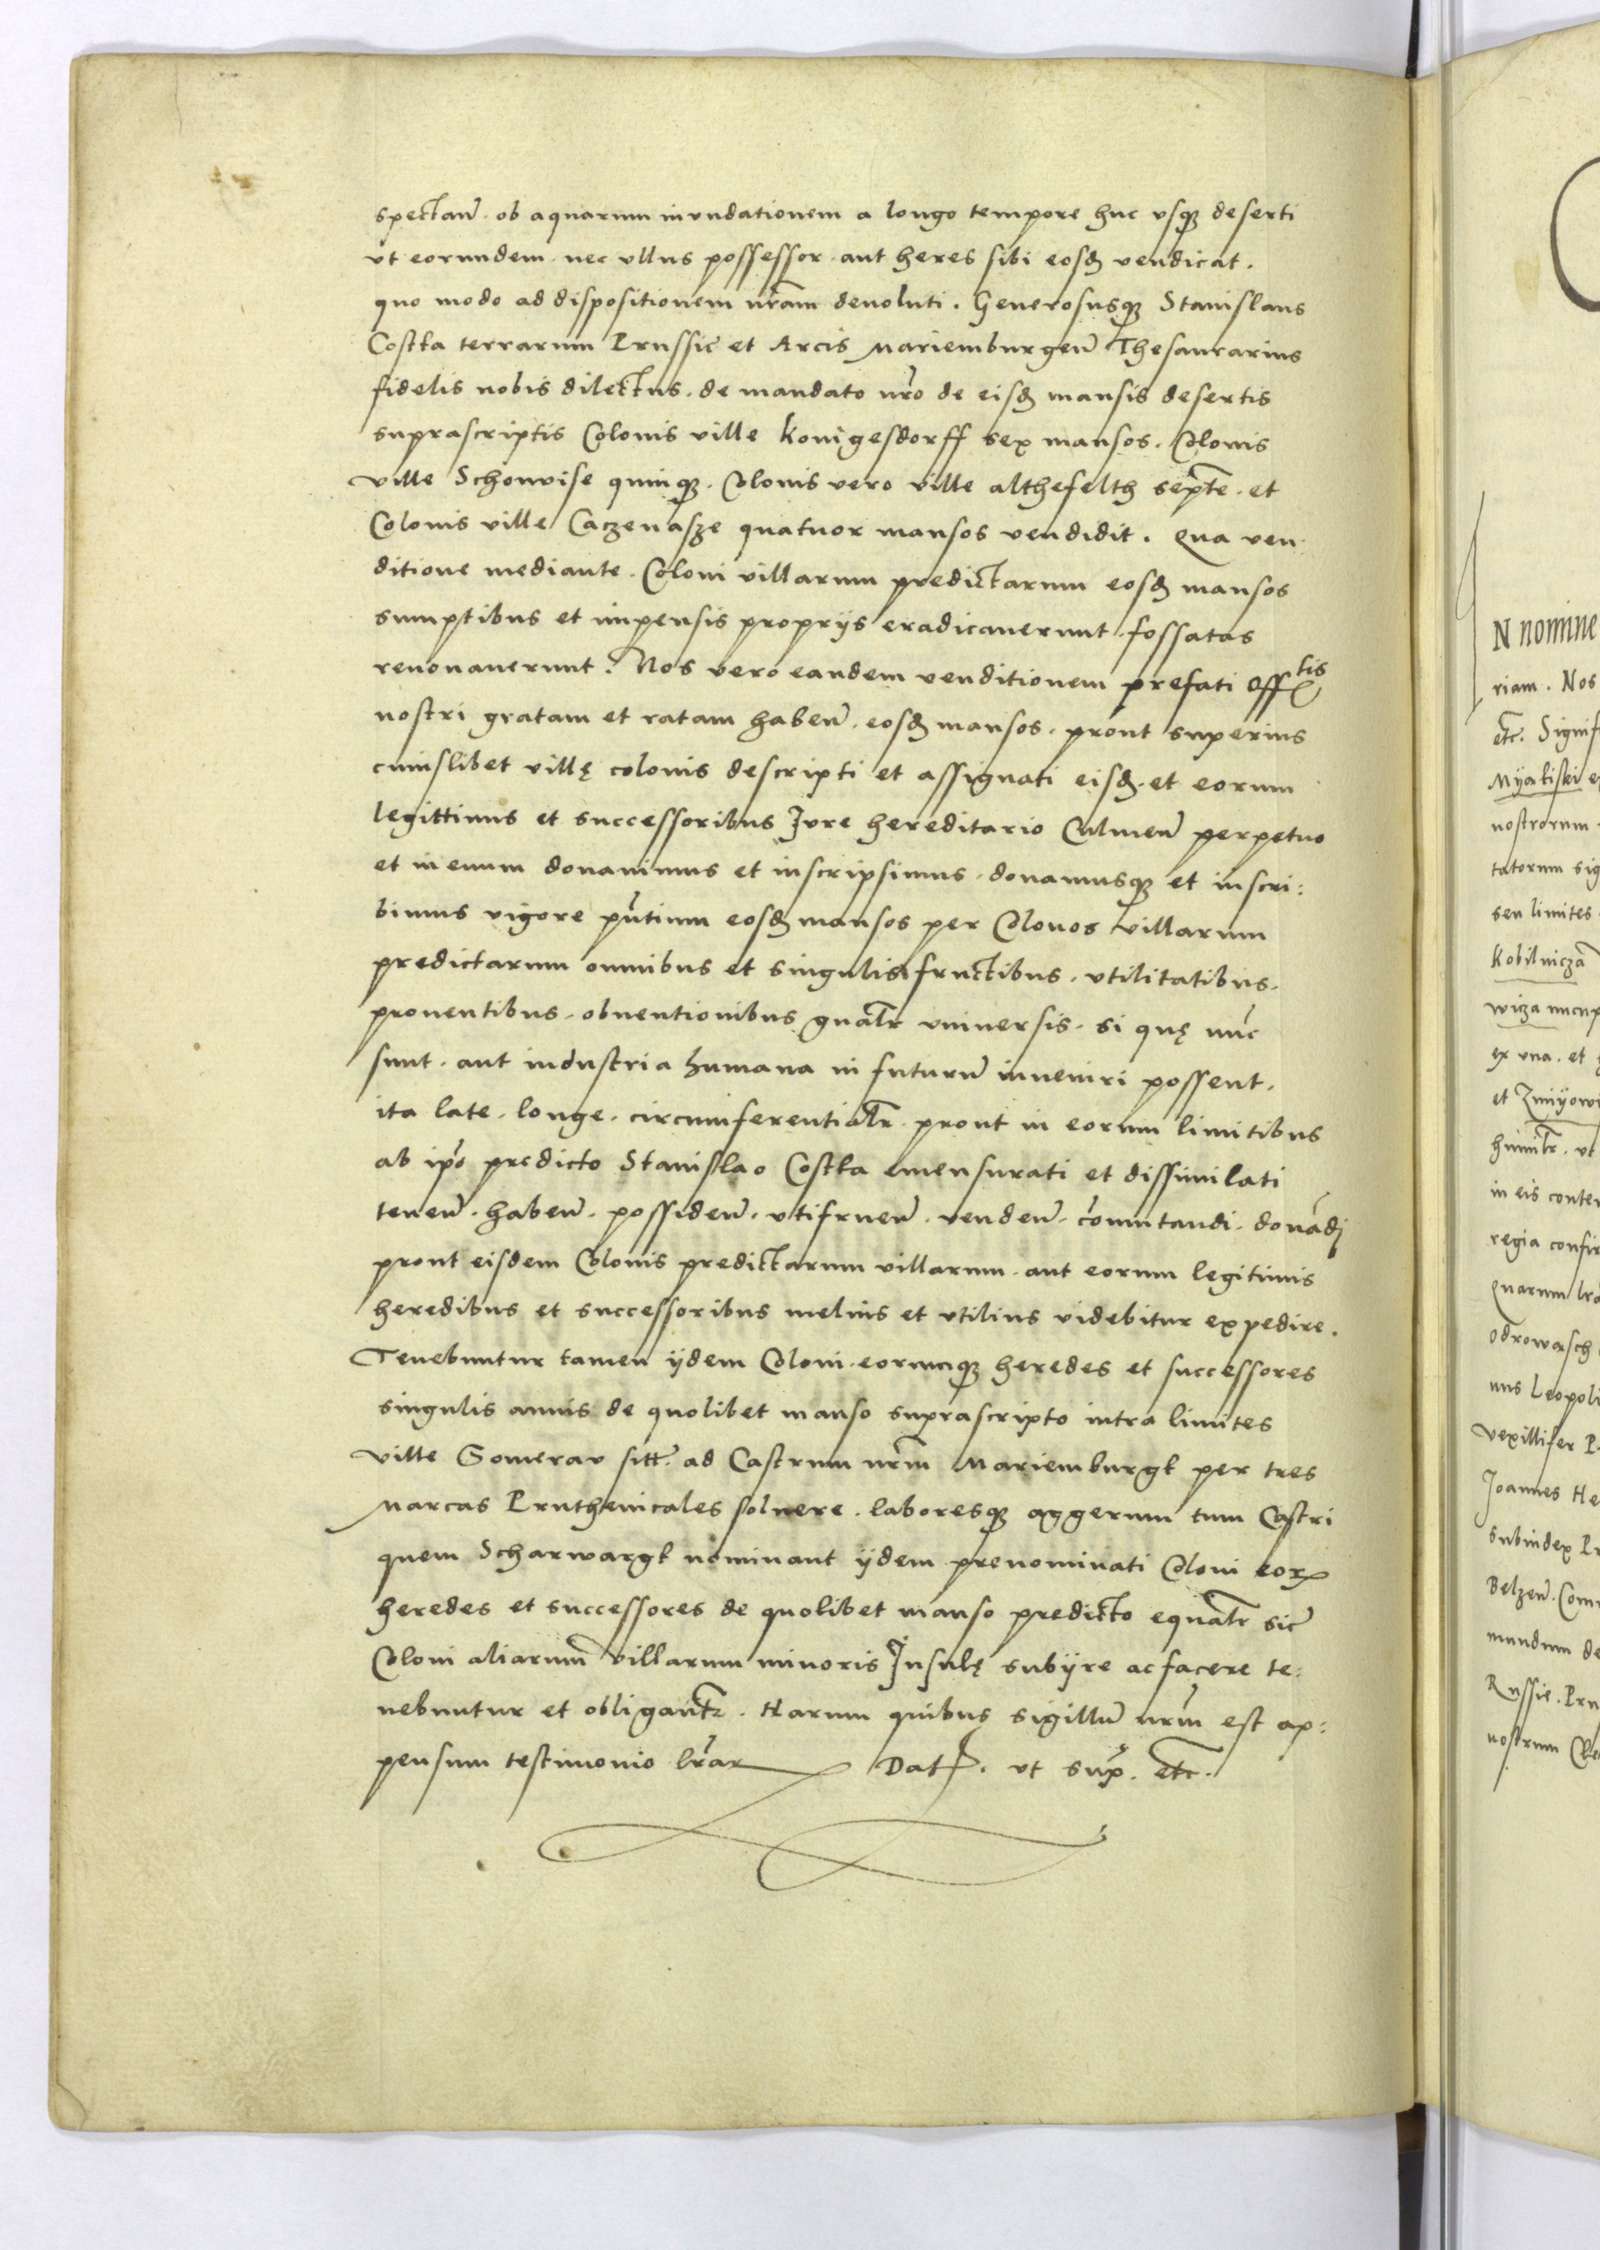 spectan̄. ob aquarum inundationem a longo tempore huc usq3 deserti
ut eorundem. nec ullus possessor. aut heres sibi eosd3 vendicat.
quo modo ad dispositionem nr̄am devoluti. Generosusq3 Stanislaus
Costka terrarum Prussie et Arcis Mariemburgen̄ Thesaurarius
fidelis nobis dilectus. de mandato nr̄o de eisd3 mansis desertis
suprascriptis Colonis ville Konigesdorff sex mansos. Colonis
ville Schonvise quinq3. Colonis vero ville althefelth septē. et
Colonis ville Caczenasze quatuor mansos vendidit. Qua ven
ditione mediante. Coloni villarum predictarum eosd3 mansos
sumptibus et impensis proprijs eradicaverunt. fossatas
renovaverunt. Nos vero eandem venditionem prefati offtis
nostri gratam et ratam haben̄. eosd3 mansos. prout superius
cuiuslibet villę colonis descripti et assignati eisd3. et eorum
legittimis et successoribus Jure hereditario Culmen̄ perpetuo
et in evum donavimus et inscripsimus. donamusq3 et inscri:
bimus vigore pn̄tium eosd3 mansos per Colonos villarum
predictarum omnibus et singulis fructibus. utilitatibus.
proventibus. obventionibus gnalr̄ universis. si quę nūc
sunt. aut industria humana in futurū inveniri possent.
ita late. longe. circumferentialr̄. prout in eorum limitibus
ab ip̄o predicto Stanislao Costka emensurati et dissimilati
tenen̄. haben̄. possiden̄. utifruen̄. venden̄. cōmutandi. donādi
prout eisdem Colonis predictarum villarum. aut eorum legitimis
heredibus et successoribus melius et utilius videbitur expedire.
Tenebuntur tamen ijdem Coloni. eorumq3 heredes et successores
singulis annis de quolibet manso suprascripto intra limites
ville Somerav sitt̄. ad Castrum nr̄m Mariemburgk per tres
Marcas Pruthenicales solvere. laboresq3 aggerum tum Castri
quem Scharwargk nominant ijdem prenominati Coloni eorꝝ
heredes et successores de quolibet manso predicto equalr̄ sic̄
Coloni aliarum villarum minoris Insulę subijre ac facere te:
nebuntur et obligant̄r. Harum quibus sigillū nr̄m est ap:
pensum testimonio lr̄ar Dat. ut sup̄. etc.

N nomine
riam. Nos
etc. Signif
Myaliski
nostrorum
tatorum sig
seu limites
Kobilniczā
wicza nucup
ex una. et
et Zmijow
humilr̄. ut
in eis conte
regia confir
Quarum
Odrowasch
nus Leopoli
Vexillifer P
Joannes He
Subiudex
Belzen̄. Com
mundum de
Russie. Pru
nostrum